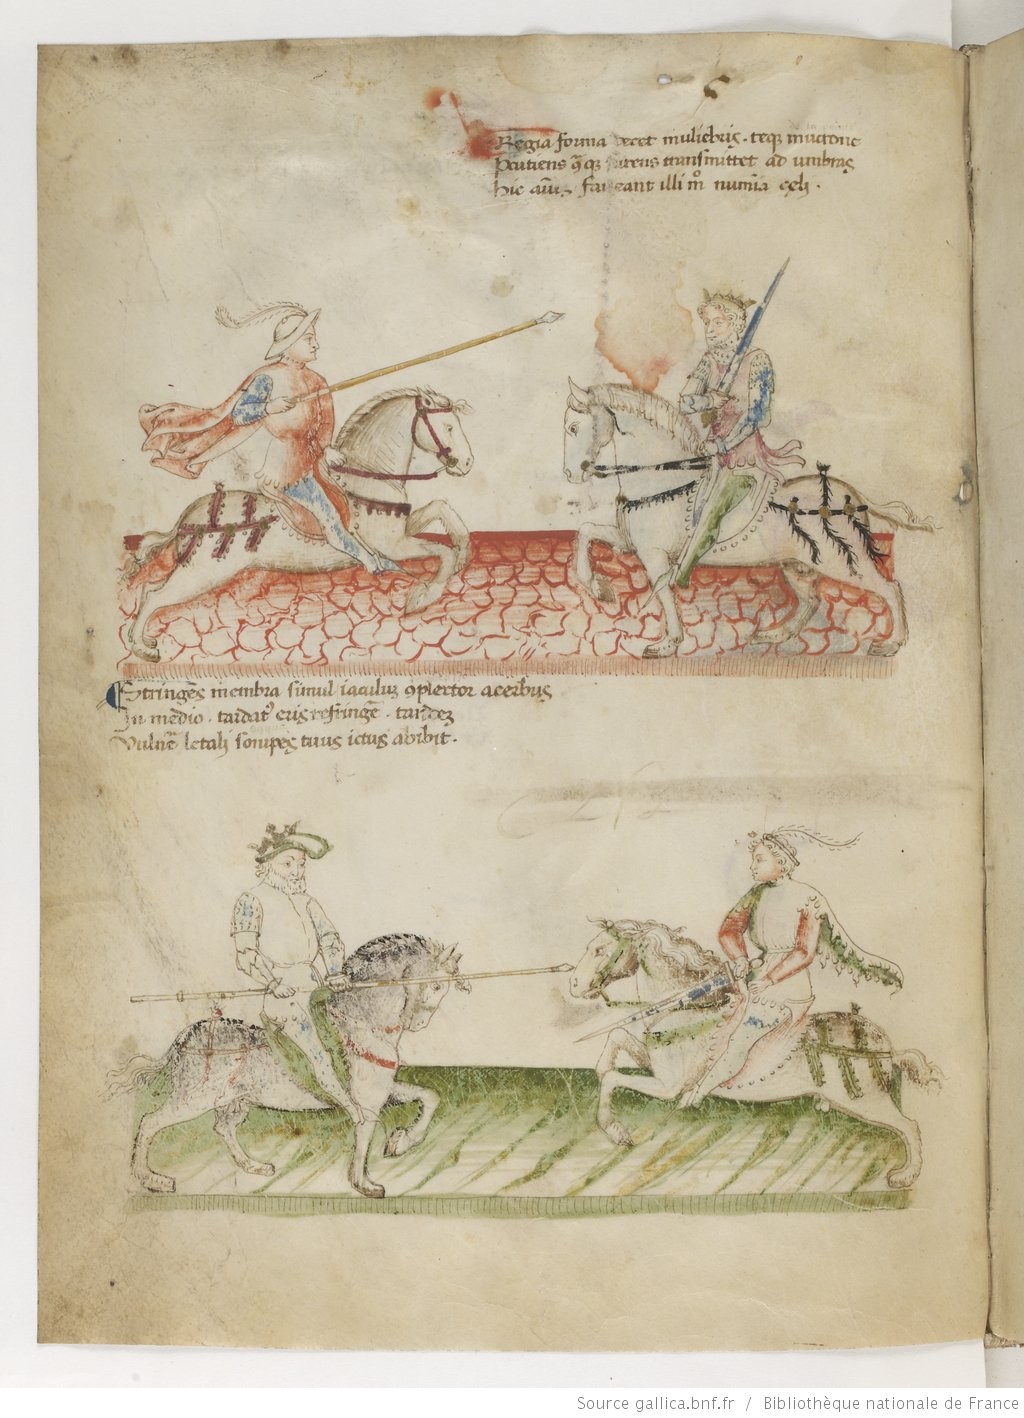 Regia forma decet muliebris. teq. mucrone
Pcutiens q̄q. furens transmittet ad umbras
hic ictus faueant illi mo numīa celi.
Stringēs membra simul iaculum 9plector acerbus
In medio. tardat' eris refringē. tardez
Vulnē letali sompes tuus ictus abibit.
Source gallica.bnf.fr / Bibliothèque nationale de France